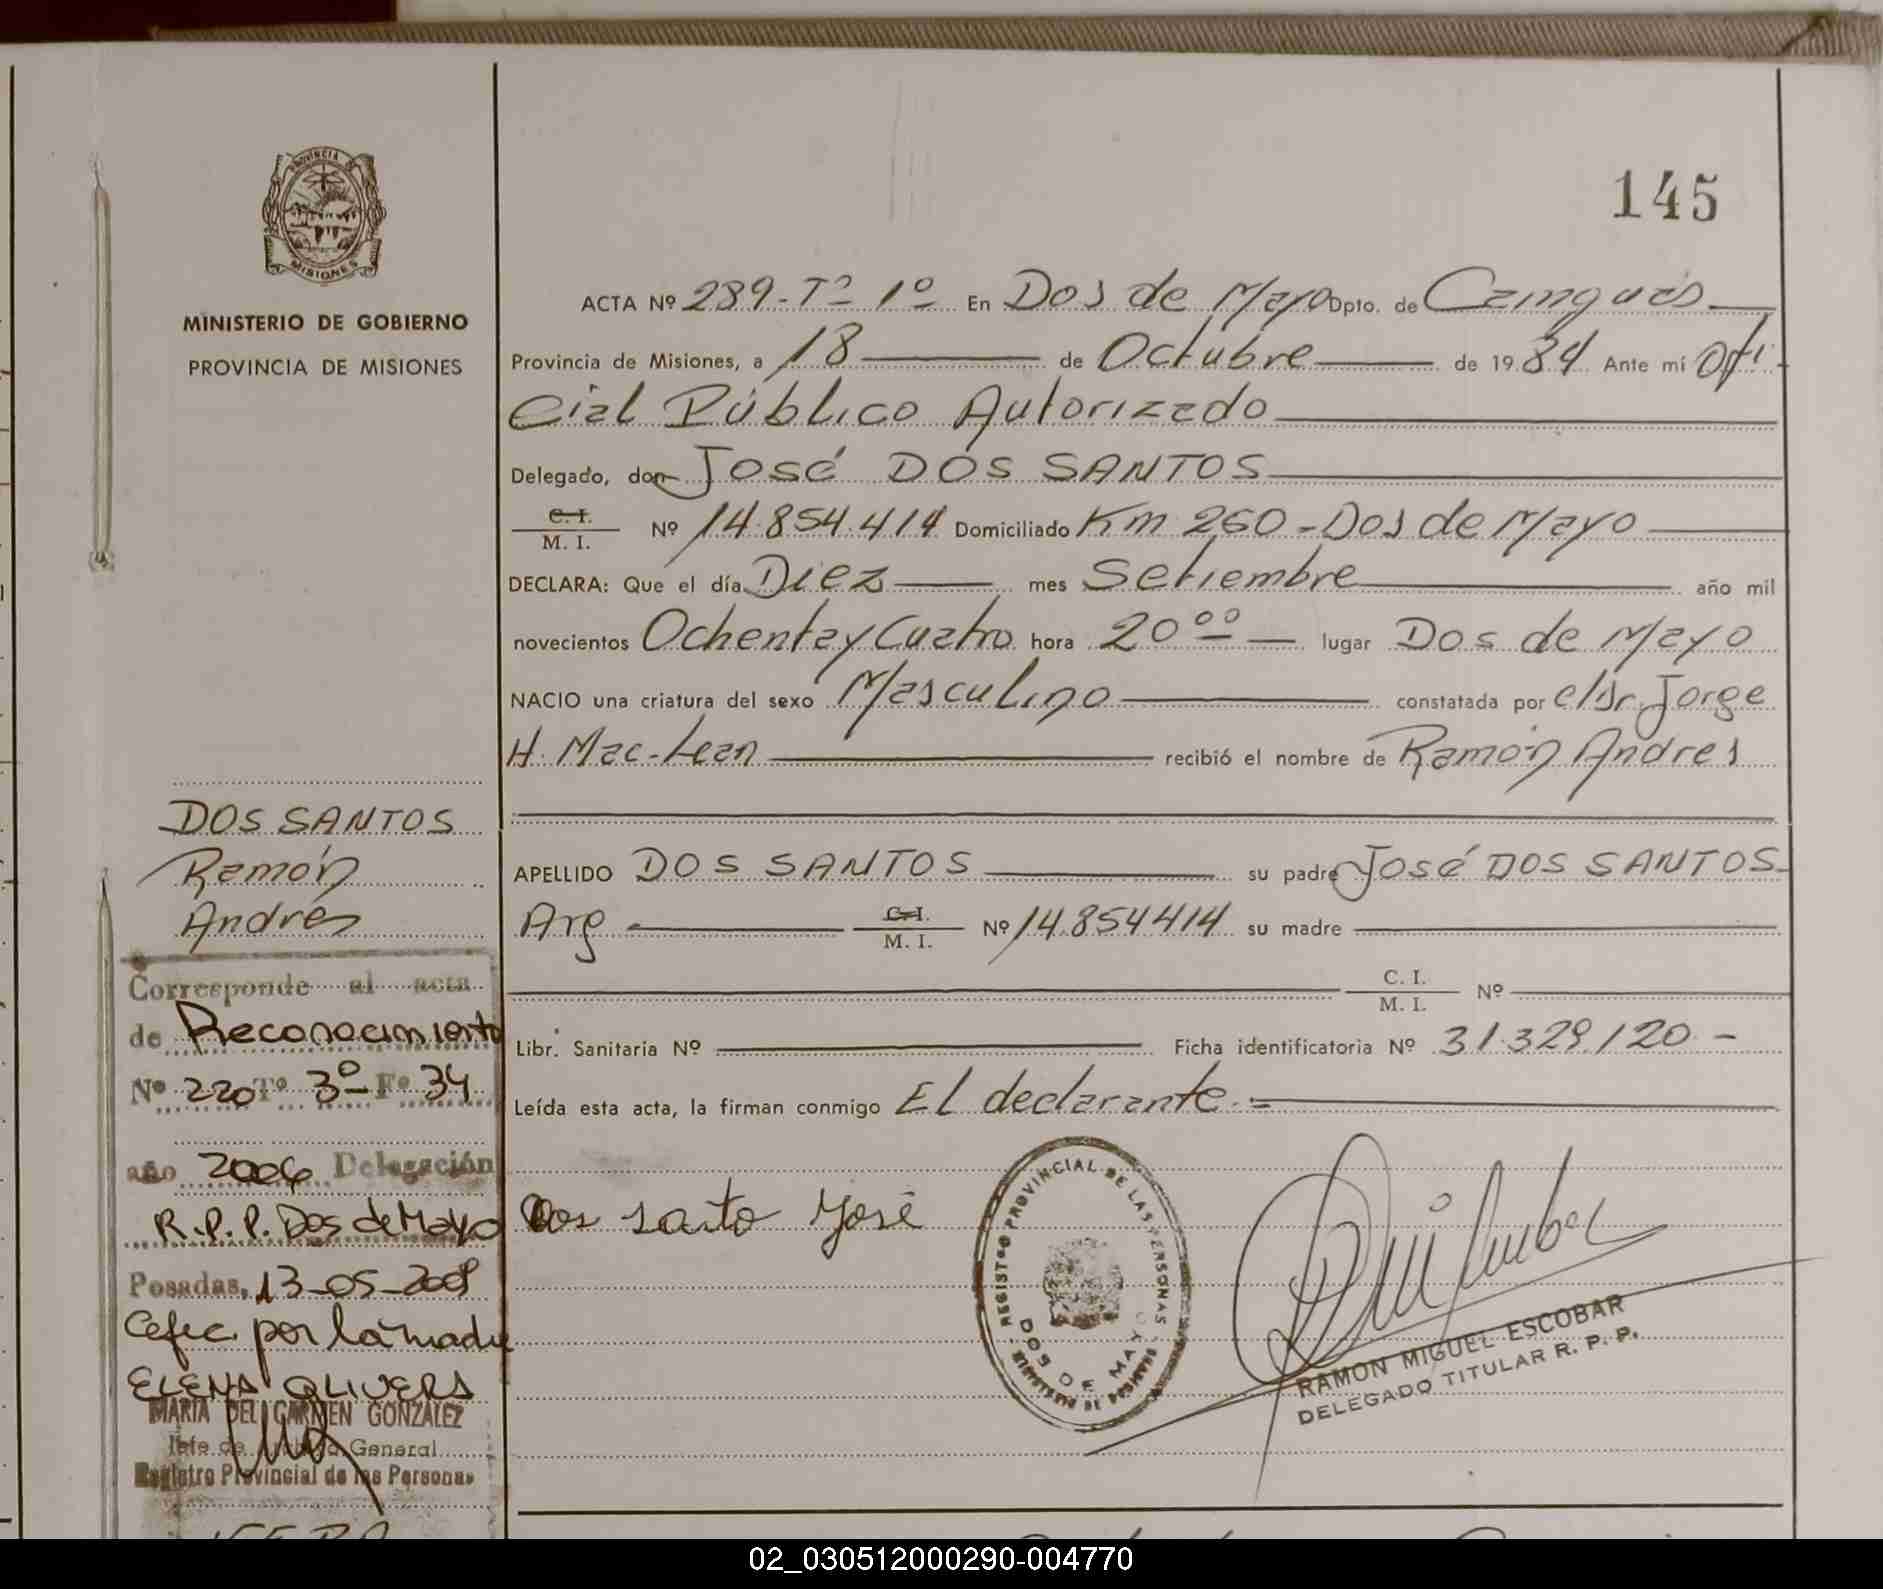 PROVINCIA DE
MISIONES
MINISTERIO DE GOBIERNO
PROVINCIA DE MISIONES
DOS SANTOS
Ramón
Andrés
Corresponde al acta
de Reconocimiento
Nº 220 Tº 3º Fº 34
año 2006 Delegación
R.P.P. Dos de Mayo
Posadas, 13-05-2009
Cefec. por la madre
ELENA OLIVERA
MARIA DEL CARMEN GONZALEZ
Jefe de Archivo General
Registro Provincial de las Personas
145
ACTA Nº 289-Tº 1º En Dos de Mayo Dpto. de Cainguás
Provincia de Misiones, a 18 de Octubre de 1984 Ante mí Ofi
cial Público Autorizado
Delegado, don José DOS SANTOS
C. I. / M. I. Nº 14.854.414 Domiciliado Km 260 - Dos de Mayo
DECLARA: Que el día Diez mes Setiembre año mil
novecientos Ochenta y Cuatro hora 20 ºº lugar Dos de Mayo
NACIO una criatura del sexo Masculino constatada por el Sr. Jorge
H. Mac-Lean recibió el nombre de Ramón Andres
APELLIDO DOS SANTOS su padre José DOS SANTOS
Arg C. I. / M. I. Nº 14.854414 su madre
C. I. / M. I. Nº
Libr. Sanitaria Nº Ficha identificatoria Nº 31.329.120-
Leída esta acta, la firman conmigo El declarante.=
Dos santo José
REGISTRO PROVINCIAL DE LAS PERSONAS
DOS DE MAYO
RAMON MIGUEL ESCOBAR
DELEGADO TITULAR R. P. P.
02_030512000290-004770